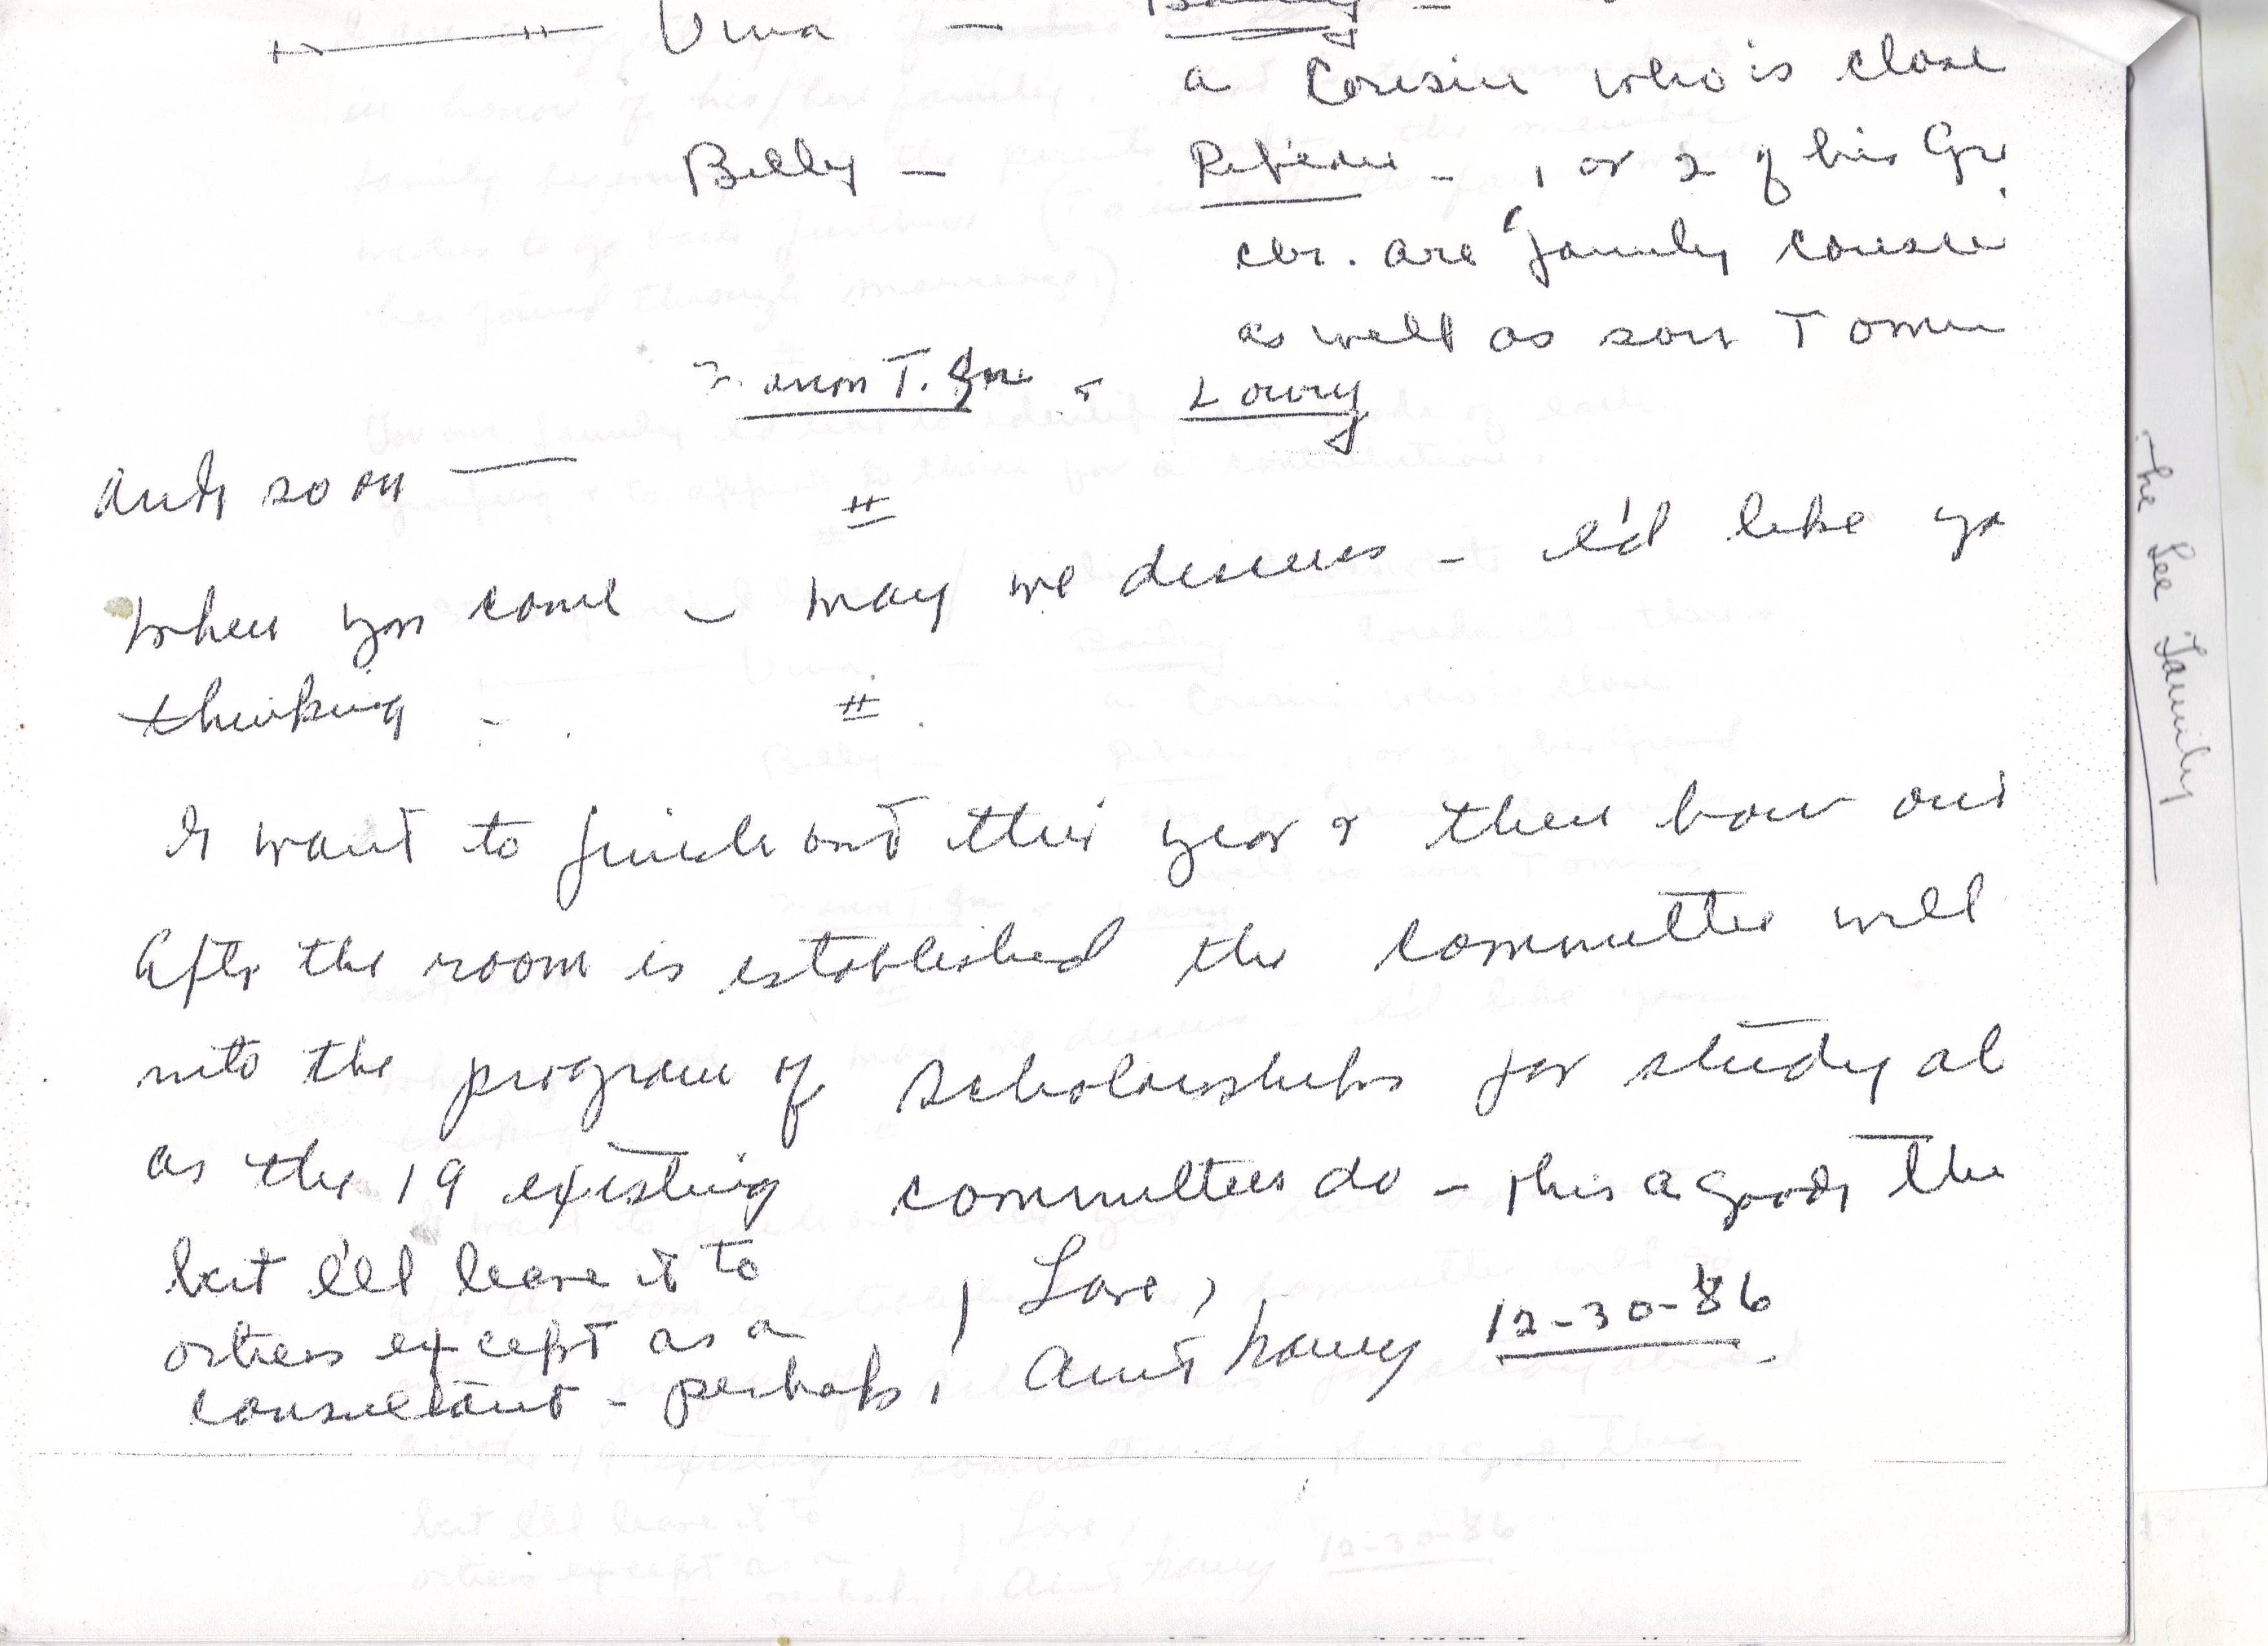 Viva —
a Cousin who is close
Billy — - 1 or 2 of his Gr
chr. are "family cousi
as well as son T
T. Jr. - Lowry
and so on —
#
When you come – may we discuss – I'd like yo
thinking –
#
I want to finish out this year & then bow out
After the room is established the committee will
into the program of Scholarships for study ab
as the 19 existing committees do – this a good thi
but I'll leave it to
others except as a
consultant - perhaps.
Love,
Aunt Nancy 12-30-86
The See Family